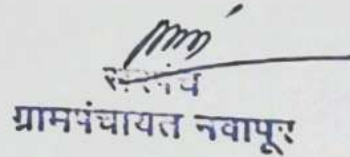 सरपंच
ग्रामपंचायत नवापूर